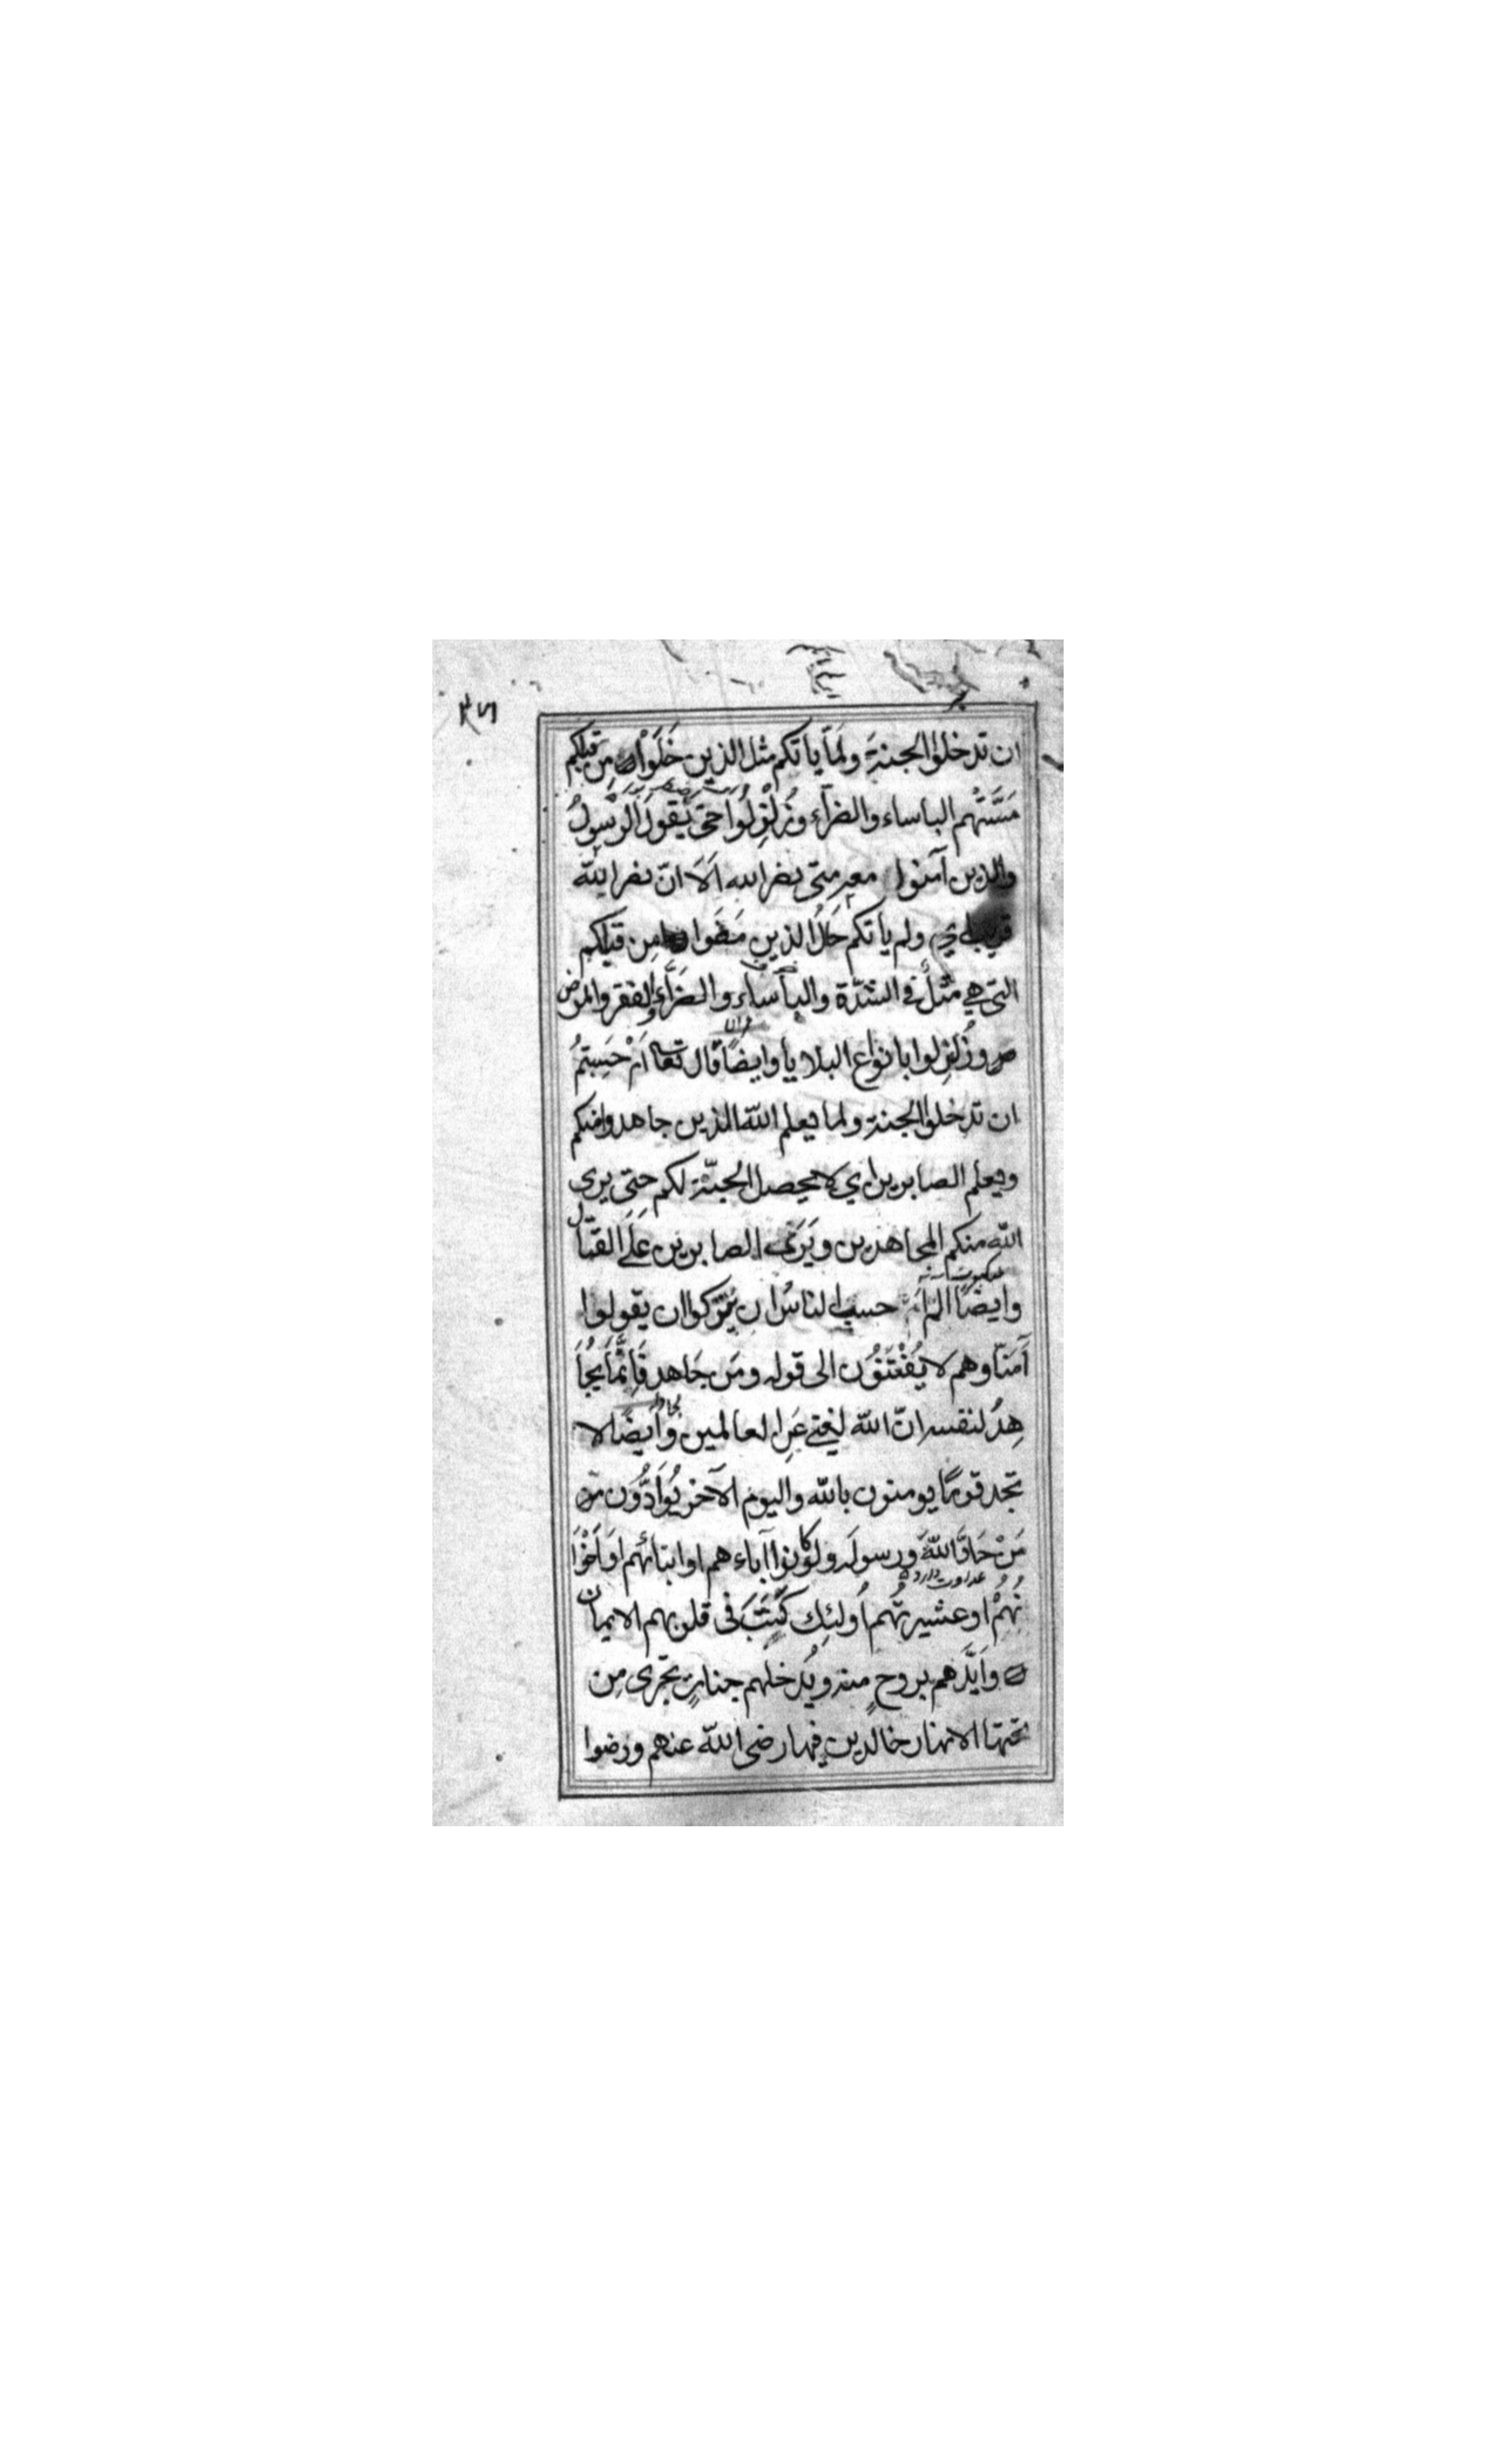 ان تدخلوا الجنة ولمّا ياتكم مثل الذين خَلَوْا من قبلكم
مَسَّتْهُم الباساء والضرّآء وزُلْزِلُوا حتى يَقولَ الرّسولُ
والذين آمنوا معه متى نصر الله اَلَا انّ نصر الله
قريب اي ولم ياتكم حَالُ الذين مَضَوا من قبلكم
التي هي مثلٌ في الشدّة والبأساء والضرّاء والفقر والمرض
وزُلزِلوا بانواع البلايا وايضًا قال تعالى اَمْ حَسِبتمُ
ان تدخلوا الجنة ولما يعلم الله الذين جاهدوا منكم
ويعلم الصابرين اي لا يحصل الجنّة لكم حتى يرى
الله منكم المجاهدين ويَرَى الصابرين عَلَى القتال
عنكبوت
وايضًا الم اَ حسب الناسُ ان يُتْركوا ان يقولوا
آمَنّا وهم لا يُفْتَنُون الى قوله ومَن جَاهد فَاِنَّمَا يُجَا
هِدُ لنفسه انّ الله لغني عَنِ العالمين وَاَيضًا لا
تجد قومًا يومنون بالله واليوم الآخر يُوَادُّون
مَنْ حَادَّ اللهَ ورسولَه ولو كانوا آباءهم او ابنائهم اَو اَخْوَا
عداوت دارد
نُهُمْ او عشيرتُهم اُولئك كَتَبَ فى قلوبهم الايمان
وَاَيَّدهم بروحٍ منه ويُدخلهم جناتٍ تجرى مِن
تحتها الانهار خالدين فيها رضى الله عنهم ورضوا